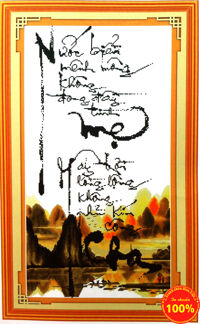 Nước biển
mênh mông
không
đong đầy
tình
mẹ
Mây trời
lồng lộng
không
phủ kín
công
cha
100%